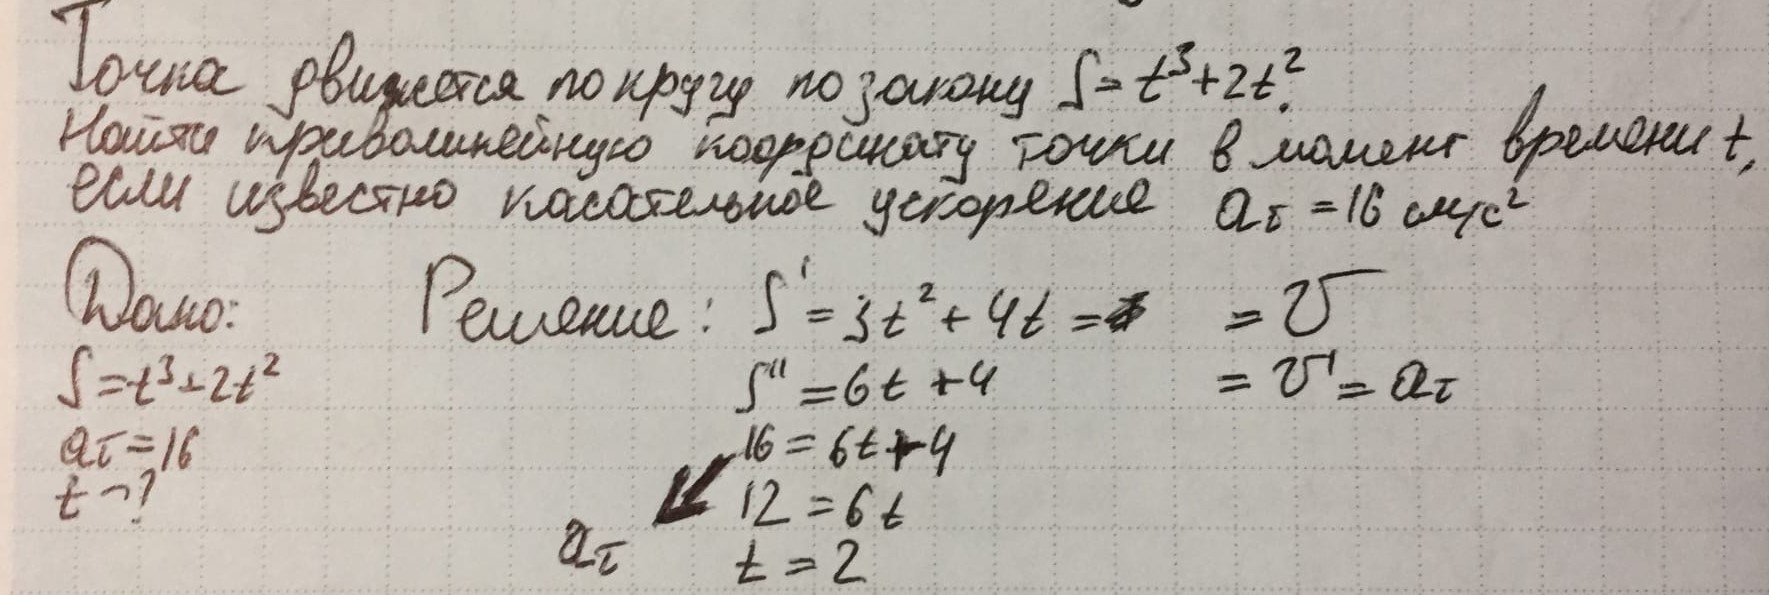 Точка движется по кругу по закону S=t³+2t².
Найти криволинейную координату точки в момент времени t,
если известно касательное ускорение aτ =16 см/с²
Дано: Решение: S' = 3t² + 4t = = υ
S=t³+2t² S'' =6t +4 = υ' = aτ
aτ=16 16 = 6t+4
t -? 12 = 6t
aτ t = 2